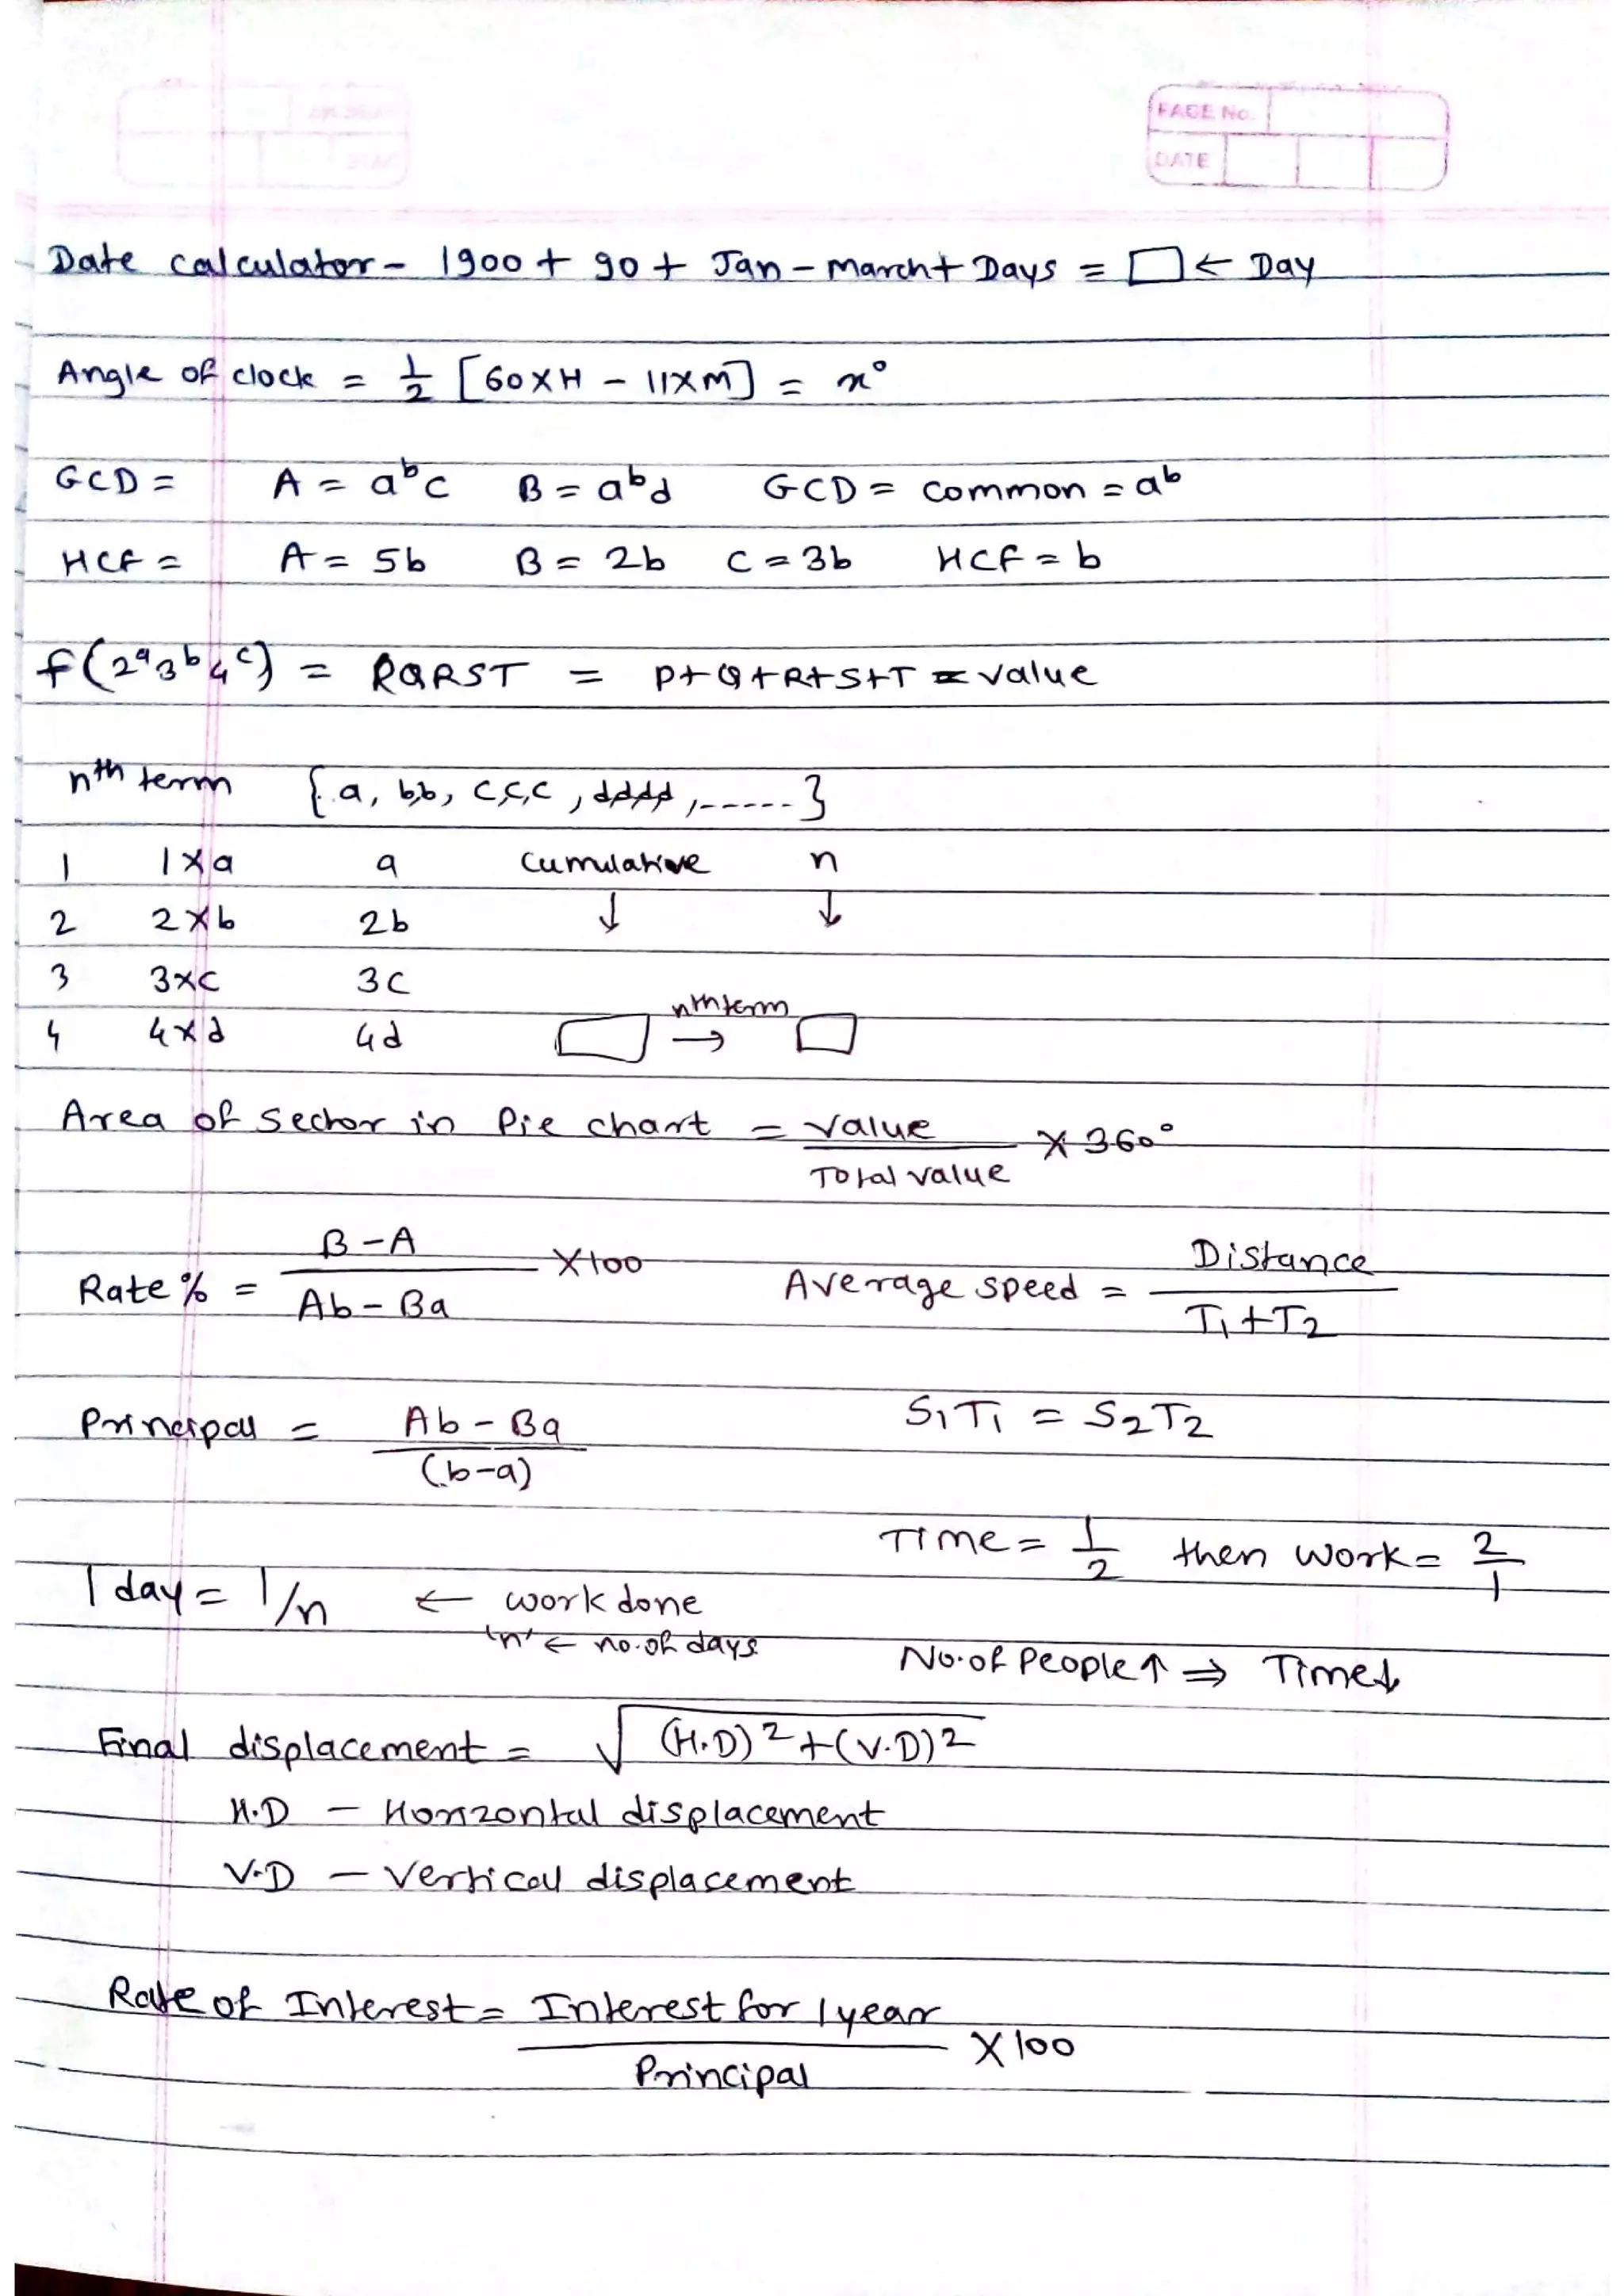 PAGE No.
DATE
Date calculator - 1900 + 90 + Jan - March + Days = □ ← Day
Angle of clock = 1/2 [60 X H - 11 X M] = x°
GCD = A = a^b c B = a^b d GCD = common = a^b
HCF = A = 5b B = 2b C = 3b HCF = b
f(2^a 3^b 4^c) = PQRST = P+Q+R+S+T = value
n^th term {a, b,b, c,c,c, d,d,d,d, ......}
1 1 X a a cumulative n
2 2 X b 2b ↓ ↓
3 3 x c 3c
4 4 x d 4d □ nth term → □
Area of Sector in Pie chart = value / Total value X 360°
Rate % = B - A / Ab - Ba X 100 Average speed = Distance / T₁ + T₂
Principal = Ab - Ba / (b-a) S₁T₁ = S₂T₂
Time = 1/2 then work = 2/1
1 day = 1/n ← work done
'n' ← no. of days No. of People ↑ ⇒ Time ↓
Final displacement = √(H.D)² + (V.D)²
H.D - Horizontal displacement
V.D - Vertical displacement
Rate of Interest = Interest for 1 year / Principal X 100